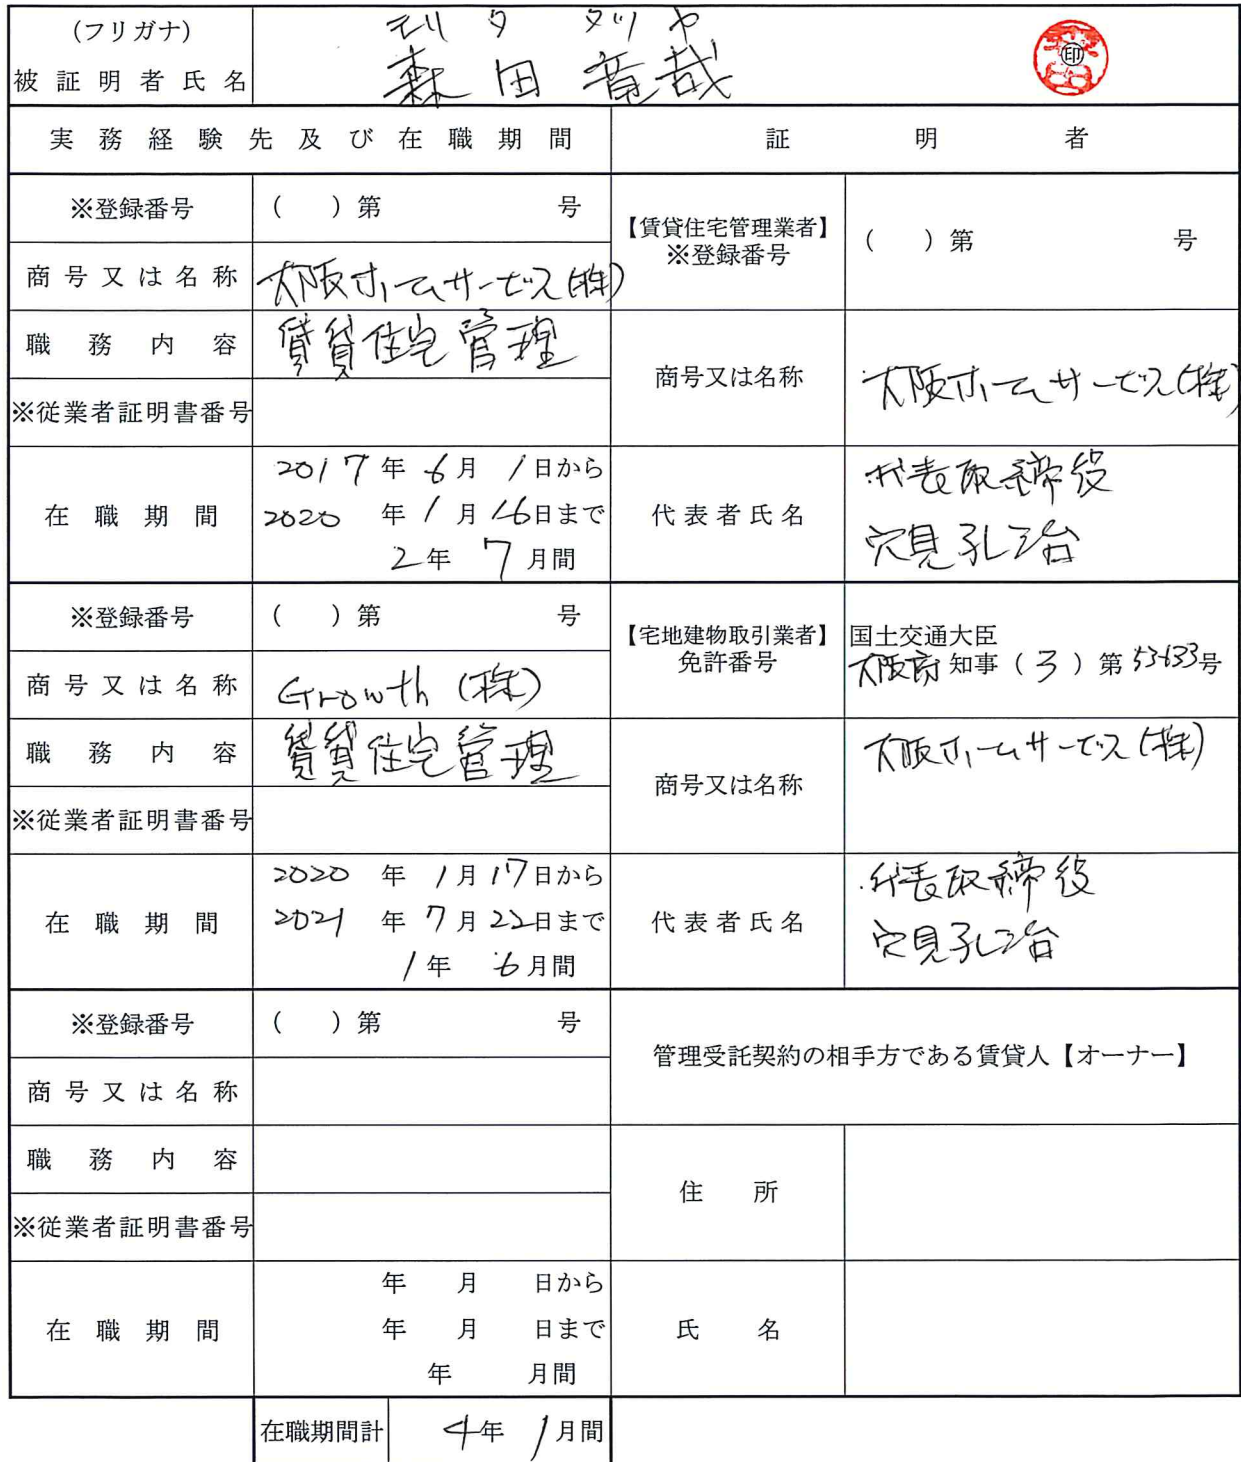 (フリガナ) モリ タ タツ ヤ
被証明者氏名 森田竜哉 ㊞
実務経験先及び在職期間 証明者
※登録番号 ( )第 号
【賃貸住宅管理業者】
※登録番号 ( )第 号
商号又は名称 大阪ホームサービス(株)
職務内容 賃貸住宅管理
商号又は名称 大阪ホームサービス(株)
※従業者証明書番号
在職期間
2017年6月1日から
2020年1月16日まで
2年7月間
代表者氏名
代表取締役
穴見
※登録番号 ( )第 号
【宅地建物取引業者】
免許番号
国土交通大臣
大阪府知事(3)第53633号
商号又は名称 Growth(株)
職務内容 賃貸住宅管理
商号又は名称 大阪ホームサービス(株)
※従業者証明書番号
在職期間
2020年1月17日から
2021年7月22日まで
1年6月間
代表者氏名
代表取締役
穴見
※登録番号 ( )第 号
管理受託契約の相手方である賃貸人【オーナー】
商号又は名称
職務内容
住所
※従業者証明書番号
在職期間
年 月 日から
年 月 日まで
年 月間
氏名
在職期間計 4年1月間